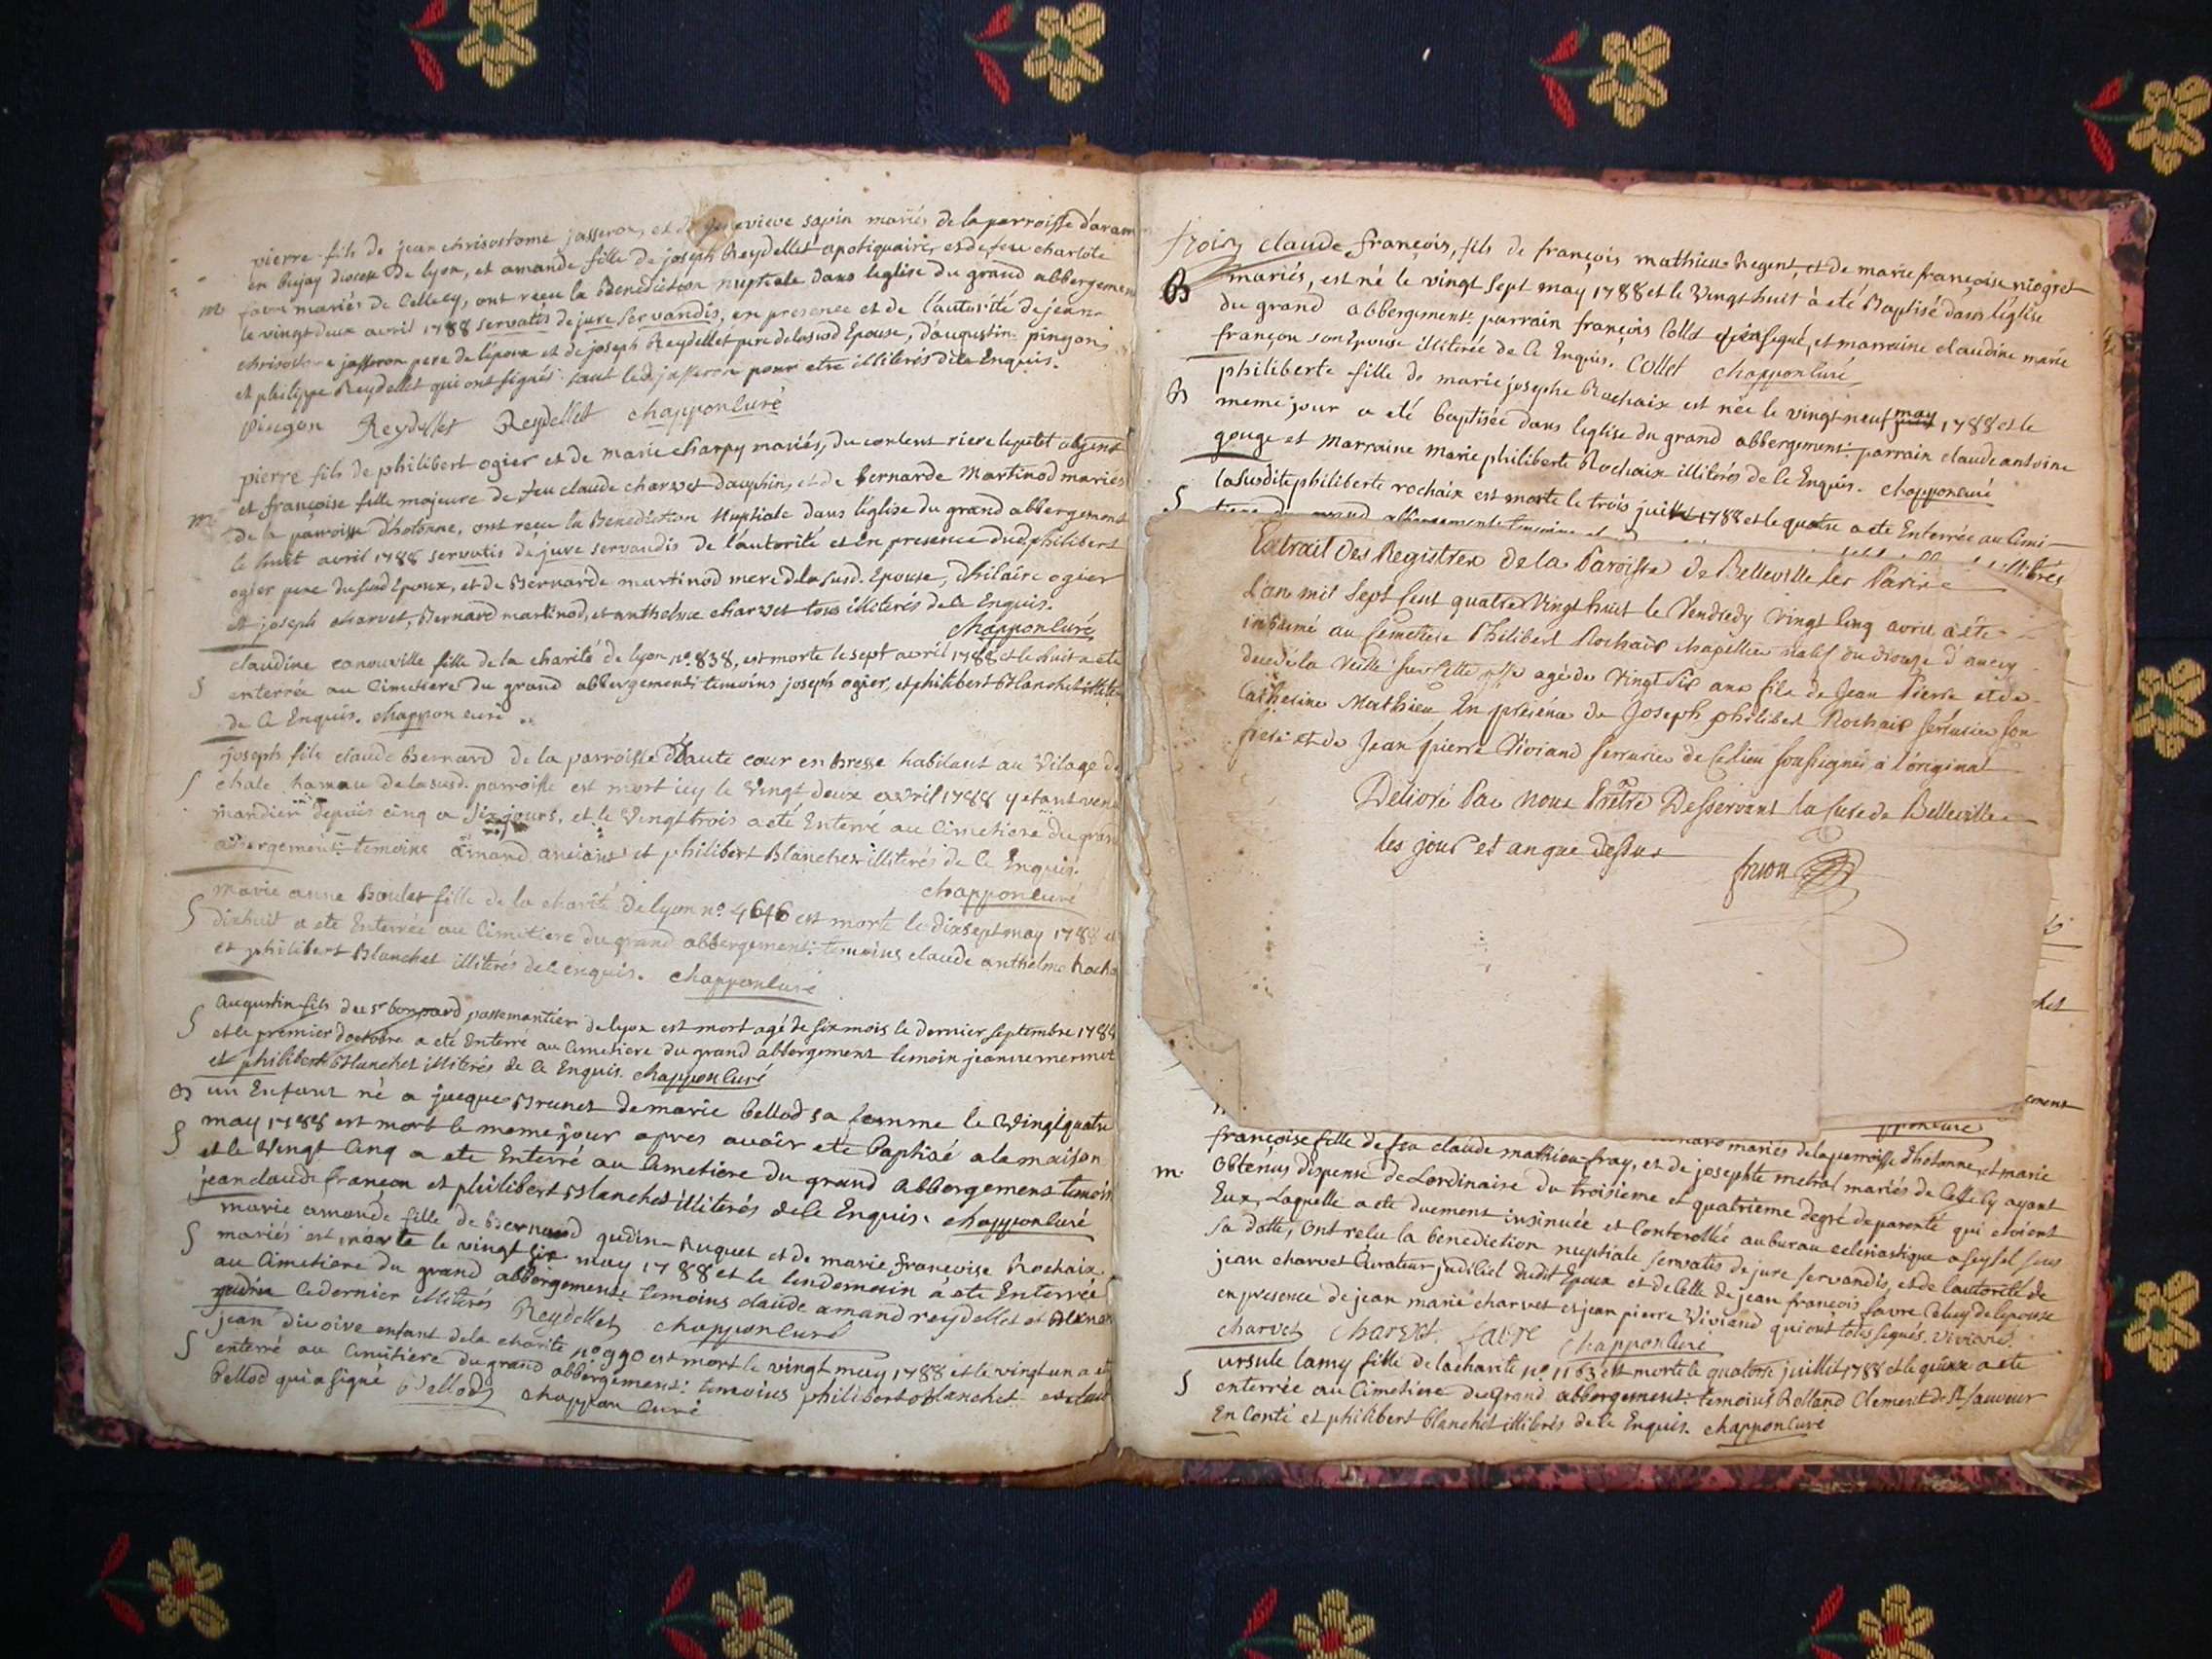 pierre fils de jean chrisostome jasseron, et de genevieve sapin mariés de la parroisse d'aram
en bujay diocese de lyon, et amande fille de joseph Reydellet apotiquaire, et de feu charlote
m favre mariés de Cellecy, ont reçu la Benediction nuptiale dans leglise du grand abbergement
le vingt deux avril 1788 servatis de jure servandis, en presence et de l'autorité de jean
chrisostome jasseron pere de l'époux et de joseph Reydellet pere de la susd Epouse, d'augustin pingon,
et philippe Reydellet qui ont signés sauf led. jasseron pour etre illiterés de ce Enquis.
Pingon Reydellet Reydellet chappon Curé
pierre fils de philibert ogier et de marie charpy mariés, du rière le petit abgent
et françoise fille majeure de feu claude charvet dauphin, et de bernarde Martinod mariés
m de la parroisse d'hotonne, ont reçu la Benediction Nuptiale dans l'église du grand abbergement
le huit avril 1788 servatis de jure servandis de l'autorité et En presence dud. philibert
ogier pere du susd Epoux, et de Bernarde martinod mere de la susd. Epouse, d'hilaire ogier
et joseph charvet, Bernard martinod, et anthelme charvet tous illiterés de ce Enquis.
chappon Curé
claudine canouville fille de la charité de lyon no. 838, est morte le sept avril 1788 et le huit a eté
S enterrée au Cimetiere du grand abbergement: temoins joseph ogier, et philibert Blanchet
de ce Enquis. chappon curé
joseph fils claude Bernard de la parroisse D'haute cour en bresse habitant au Vilage de
S chale hamau de la susd. parroisse est mort icy le Vingt deux avril 1788 y etant venu
mandier depuis cinq a six jours, et le Vingt trois a eté Enterré au Cimetiere du grand
abbergement: temoins amand anciant et philibert Blanchet illiterés de ce Enquis.
chappon curé
marie anne Boulet fille de la charité de lyon no. 4646 est morte le dix sept may 1788 et
S dix huit a eté Enterrée au Cimetiere du grand abbergement: temoins claude anthelme Rocha
et philibert Blanchet illiterés de ce enquis. chappon Curé
Augustin fils du sr bonnard passemantier de lyon est mort agé de six mois le dernier septembre 1788
S et le premier d'octobre a eté Enterré au Cimetiere du grand abbergement temoin jeanne mermet
et philibert Blanchet illiterés de ce Enquis. chappon Curé
B un Enfant né a jacque Brunet de marie bellod sa femme le Vingt quatre
may 1788 est mort le meme jour apres avoir eté Baptisé a la maison
S et le Vingt Cinq a eté Enterré au Cimetiere du grand abbergement temoin
jean claude françon et philibert Blanchet illiterés de ce Enquis. chappon Curé
marie amande fille de Bernard gudin-huguet et de marie françoise Rochaix
S mariés est morte le vingt six may 1788 et le lendemain à eté Enterrée
au Cimetiere du grand abbergement: temoins claude amand reydellet et Bernar
gudin ce dernier illiterés Reydellet chappon Curé
jean divoire enfant de la charité no 990 est mort le vingt may 1788 et le vingt un a eté
S enterré au Cimetiere du grand abbergement: temoins philibert Blanchet et
Bellod qui a signé Bellod chappon Curé
froin claude françois, fils de françois mathieu Regent, et de marie françoise niogret
B mariés, est né le vingt sept may 1788 et le Vingt huit à eté Baptisé dans l'église
du grand abbergement. parrain françois Collet qui a signé, et marraine claudine marie
françon son Epouse illiterée de Ce Enquis. Collet chappon Curé
philiberte fille de marie josephe Rochaix est née le vingt neuf may 1788 et le
B meme jour a eté baptisée dans l'eglise du grand abbergement: parrain claude antoine
gouge et Marraine Marie philiberte Rochaix illiterés de ce Enquis. chappon curé
S la susdite philiberte rochaix est morte le trois juillet 1788 et le quatre a eté Enterrée au Cimi
tiere du grand abbergement
illiterés
Extrait des Registres de la Paroisse de Belleville les Paris
L'an mil sept Cent quatre Vingt huit le Vendredy Vingt Cinq avril a été
inhumé au Cimetiere Philibert Rochaix chapellier natif du diocèse d'anecy
decedé la veille sur cette psse agé de Vingt Six ans fils de Jean Pierre et de
Catherine Mathieu En présence de Joseph philibert Rochaix serrurier son
frere et de Jean pierre Viviand serrurier de Ce lieu soussignés à l'original
Délivré Par Nous Prêtre Desservant la Cure de Belleville
les jour et an que dessus
ement
ppon Curé
mariés de la parroisse d'hotonne, et marie
françoise fille de feu claude mathieu-fray, et de josephte metral mariés de Cellecy ayant
m. Obtenus dispense de Lordinaire du troisieme et quatrieme degré de parenté qui etoient
Eux, Laquelle a eté duement insinuée et Controllée au bureau eclesiastique a seysel sous
sa datte, Ont reçu la benediction nuptiale servatis de jure servandis, et de lautorité de
jean charvet Curateur judiciel dudit Epoux et de Celle de jean françois favre Celuy de lepouse
en presence de jean marie charvet et jean pierre Viviand qui ont tous signés. Viviand
charvet Charvet favre Chappon Curé
ursule lamy fille de la charité no. 1163 est morte le quatorse juillet 1788 et le quinze a eté
S enterrée au Cimetiere du grand abbergement: temoins Rolland Clement de St sauveur
En Conté et philibert blanchet illiterés de Ce Enquis. chappon Curé